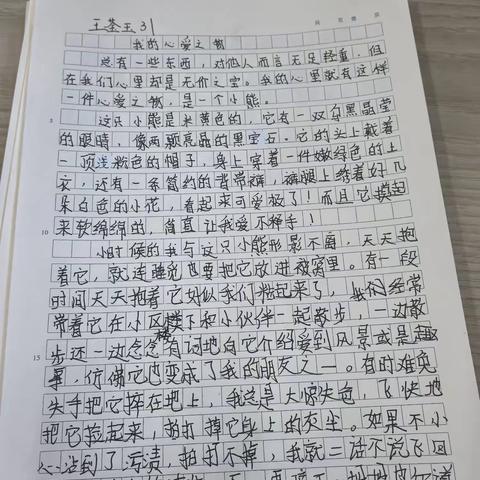 王荃玉 31
我的心爱之物
总有一些东西，对他人而言无足轻重，但
在我们心里却是无价之宝。我的心里就有这样
一件心爱之物，是一个小熊。
这只小熊是米黄色的，它有一双乌黑晶莹
的眼睛，像两颗亮晶的黑宝石。它的头上戴着
一顶浅粉色的帽子，身上穿着一件嫩绿色的上
衣，还有一条简约的背带裤，裤腿上绣着好几
朵白色的小花，看起来可爱极了！而且它摸起
来软绵绵的，简直让我爱不释手！
小时候的我与这只小熊形影不离，天天抱
着它，就连睡觉也要把它放进被窝里。有一段
时间天天抱着它好似我们粘起来了，我们经常
常着它在小区楼下和小伙伴一起散步，一边散
步还一边念念有词地向它介绍爱到风景或是趣
事，仿佛它也变成了我的朋友之一。有时难免
失手把它摔在地上，我总是大惊失色，飞快地
把它捡起来，拍打掉它身上的灰尘。如果不小
心沾到了污渍，拍打不掉，我就二话不说飞回